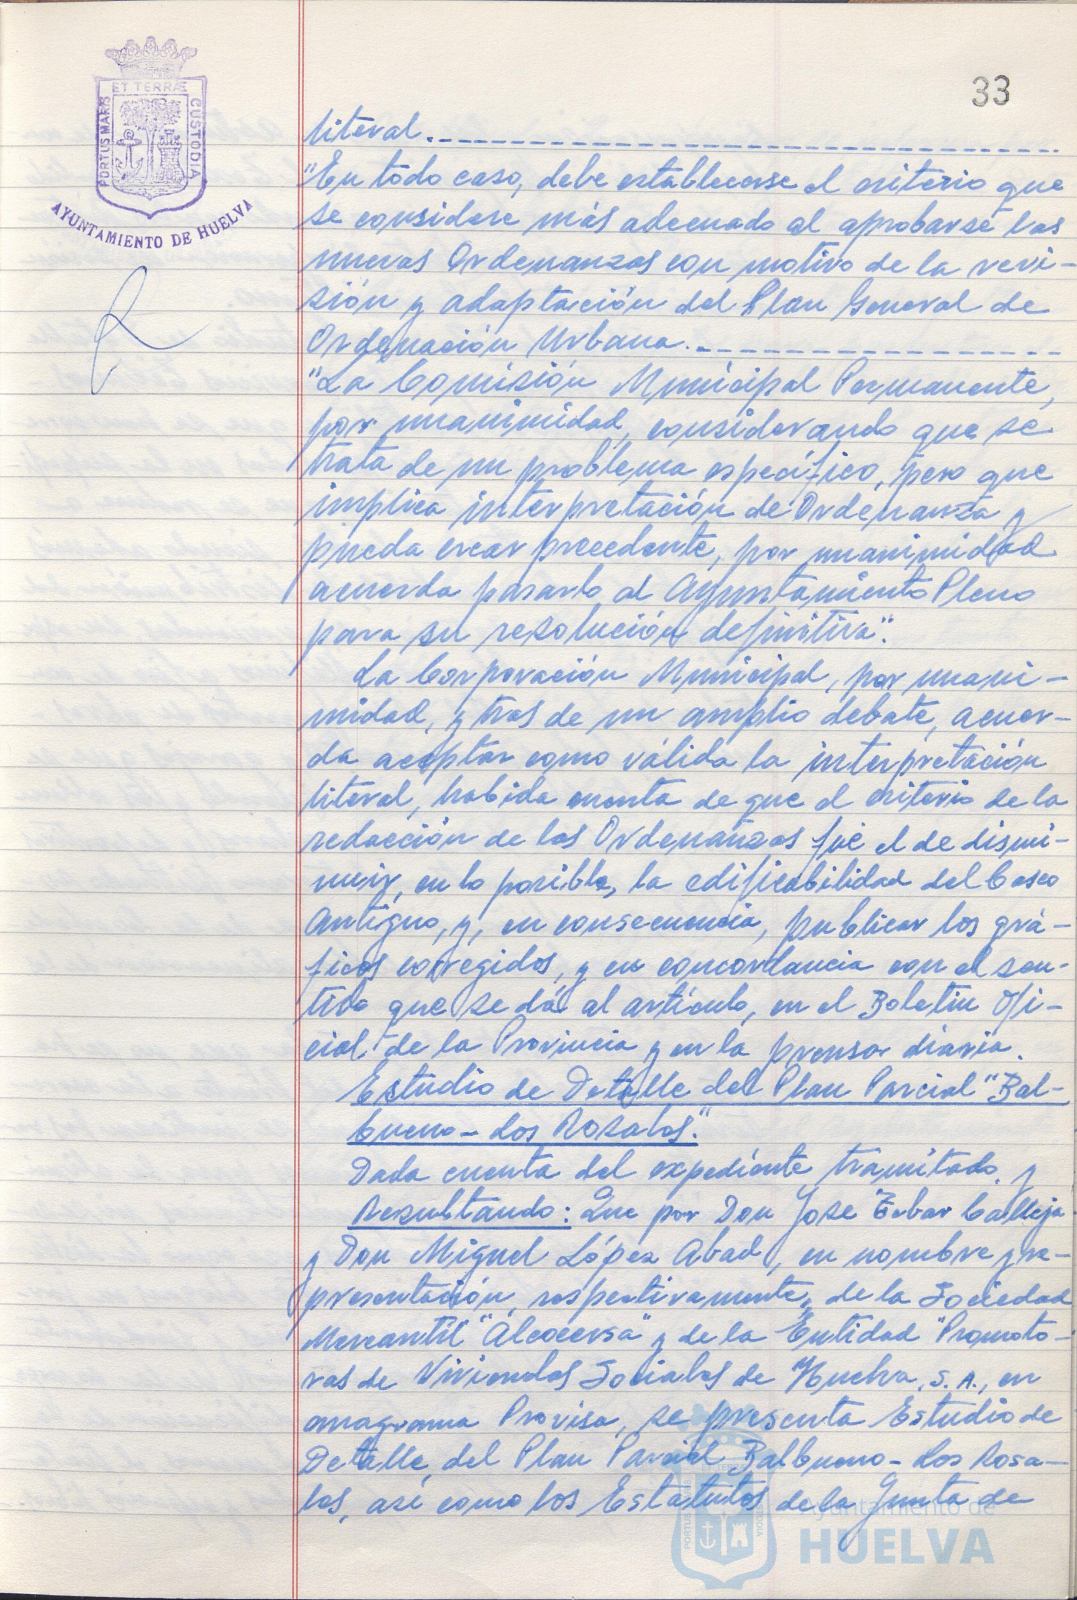 33
ET TERRÆ
PORTUS MARIS
CUSTODIA
AYUNTAMIENTO DE HUELVA
literal.
"En todo caso, debe establecerse el criterio que
se considere más adecuado al aprobarse las
nuevas Ordenanzas con motivo de la revi-
sión y adaptación del Plan General de
Ordenación Urbana.
"La Comisión Municipal Permanente,
por unanimidad, considerando que se
trata de un problema específico, pero que
implica interpretación de Ordenanza y
pueda crear precedente, por unanimidad
acuerda pasarlo al Ayuntamiento Pleno
para su resolución definitiva".
La Corporación Municipal, por unani-
midad, y tras de un amplio debate, acuer-
da aceptar como válida la interpretación
literal, habida cuenta de que el criterio de la
redacción de las Ordenanzas fué el de dismi-
nuir, en lo posible, la edificabilidad del Casco
Antiguo, y, en consecuencia, publicar los grá-
ficos corregidos, y en concordancia con el sen-
tido que se dá al artículo, en el Boletin Ofi-
cial de la Provincia y en la prensa diaria.
Estudio de Detalle del Plan Parcial "Bal-
bueno - Los Rosales."
Dada cuenta del expediente tramitado, y
Resultando: Que por Don José Calleja
y Don Miguel López Abad, en nombre y re-
presentación, respectivamente, de la Sociedad
Mercantil "Alcocersa" y de la Entidad "Promoto-
ras de Viviendas Sociales de Huelva, S.A., en
anagrama Provisa, se presenta Estudio de
Detalle, del Plan Parcial Balbueno - Los Rosa-
les, así como los Estatutos de la Junta de
Ayuntamiento de
HUELVA